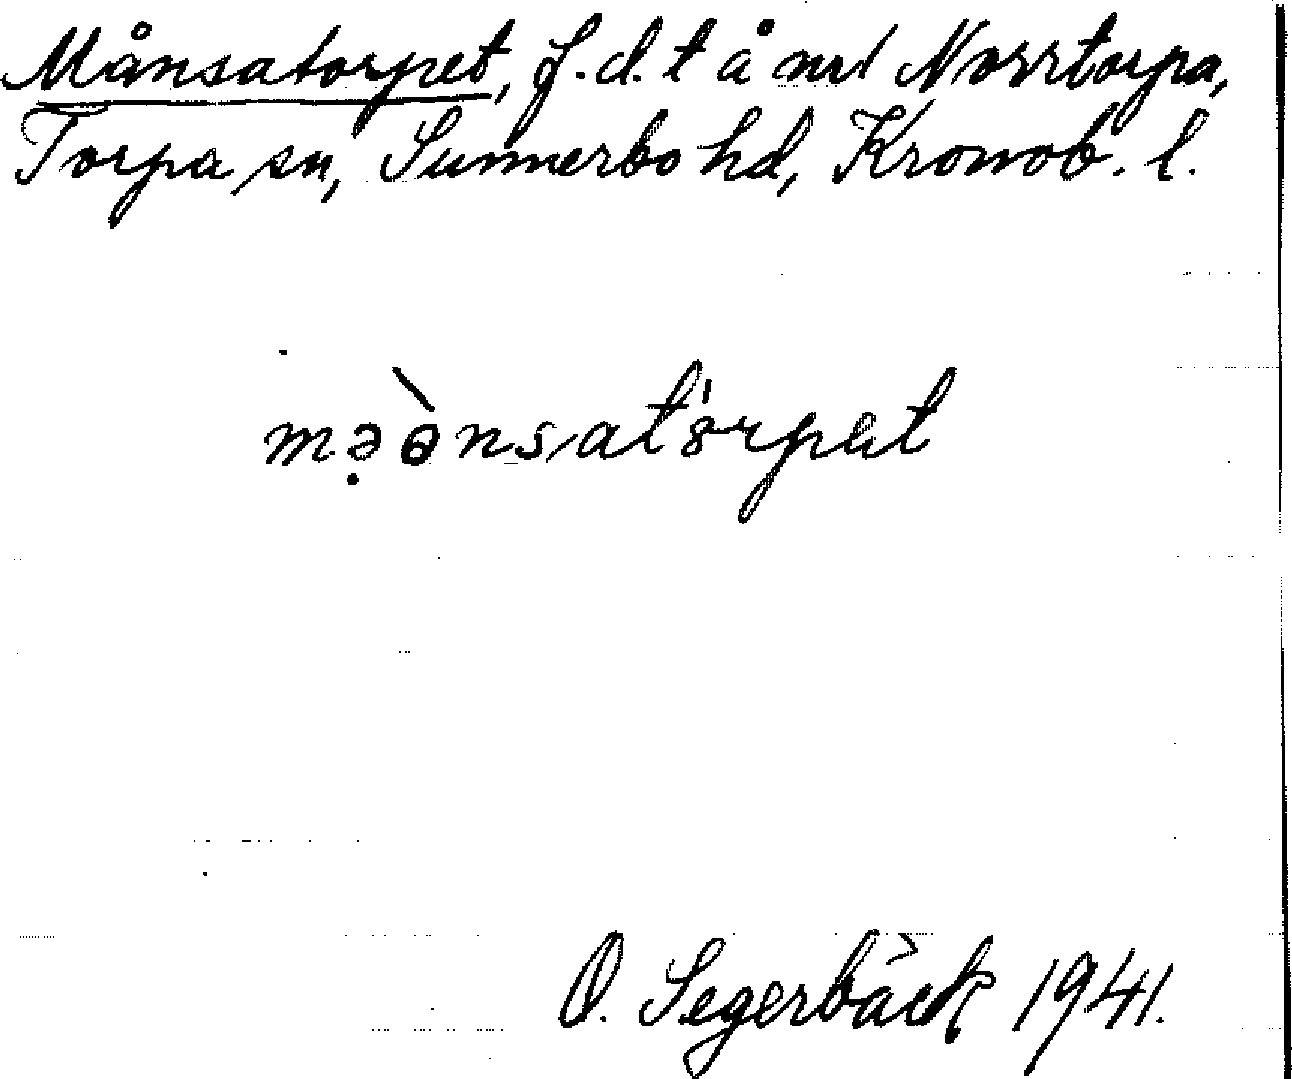 Månsatorpet, f.d. t å nr 1 Norrtorpa,
Torpa sn, Sunnerbo hd, Kronob. l.
mə̣ɵ̀nsatórpet
O. Segerbäck 1941.